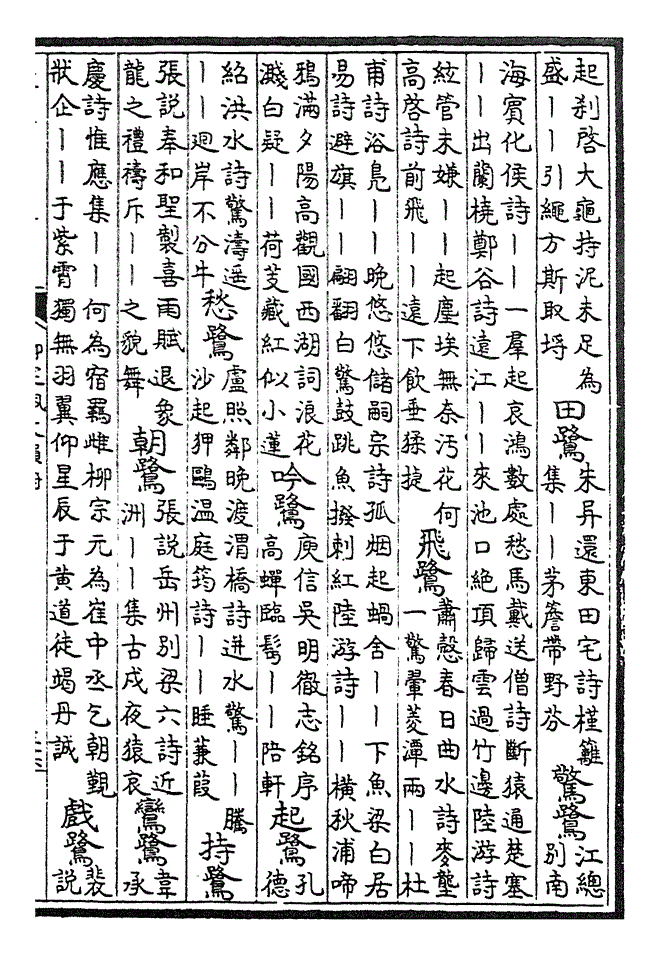 起刹啓大龜持泥未足為
盛丨丨引繩方斯取埒
田鷺
朱异還東田宅詩槿籬
集丨丨茅簷帶野芬
驚鷺
江總
别南
海賓化侯詩丨丨一羣起哀鴻數處愁馬戴送僧詩斷猿通楚塞
丨丨出蘭橈鄭谷詩遠江丨丨來池口絶頂歸雲過竹邊陸游詩
絃管未嫌丨丨起塵埃無奈汚花何
高啓詩前飛丨丨遠下飲垂猱捷
飛鷺
蕭慤春日曲水詩麥壟
一驚翬菱潭兩丨丨杜
甫詩浴鳧丨丨晚悠悠儲嗣宗詩孤烟起蝸舍丨丨下魚梁白居
易詩避旗丨丨翩翻白驚鼓跳魚撥剌紅陸游詩丨丨横秋浦啼
鴉滿夕陽高觀國西湖詞浪花
濺白疑丨丨荷芰藏紅似小蓮
吟鷺
庾信吳明徹志銘序
高蟬臨髩丨丨陪軒
起鷺
孔
德
紹洪水詩驚濤遥
丨丨廻岸不分牛
愁鷺
盧照鄰晚渡渭橋詩迸水驚丨丨騰
沙起狎鷗溫庭筠詩丨丨睡蒹葭
持鷺
張説奉和聖製喜雨賦退象
龍之禮禱斥丨丨之貌舞
朝鷺
張説岳州别梁六詩近
洲丨丨集古戍夜猿哀
鸞鷺
韋
承
慶詩惟應集丨丨何為宿羇雌柳宗元為崔中丞乞朝覲
狀企丨丨于紫霄獨無羽翼仰星辰于黄道徒竭丹誠
戲鷺
裴
説